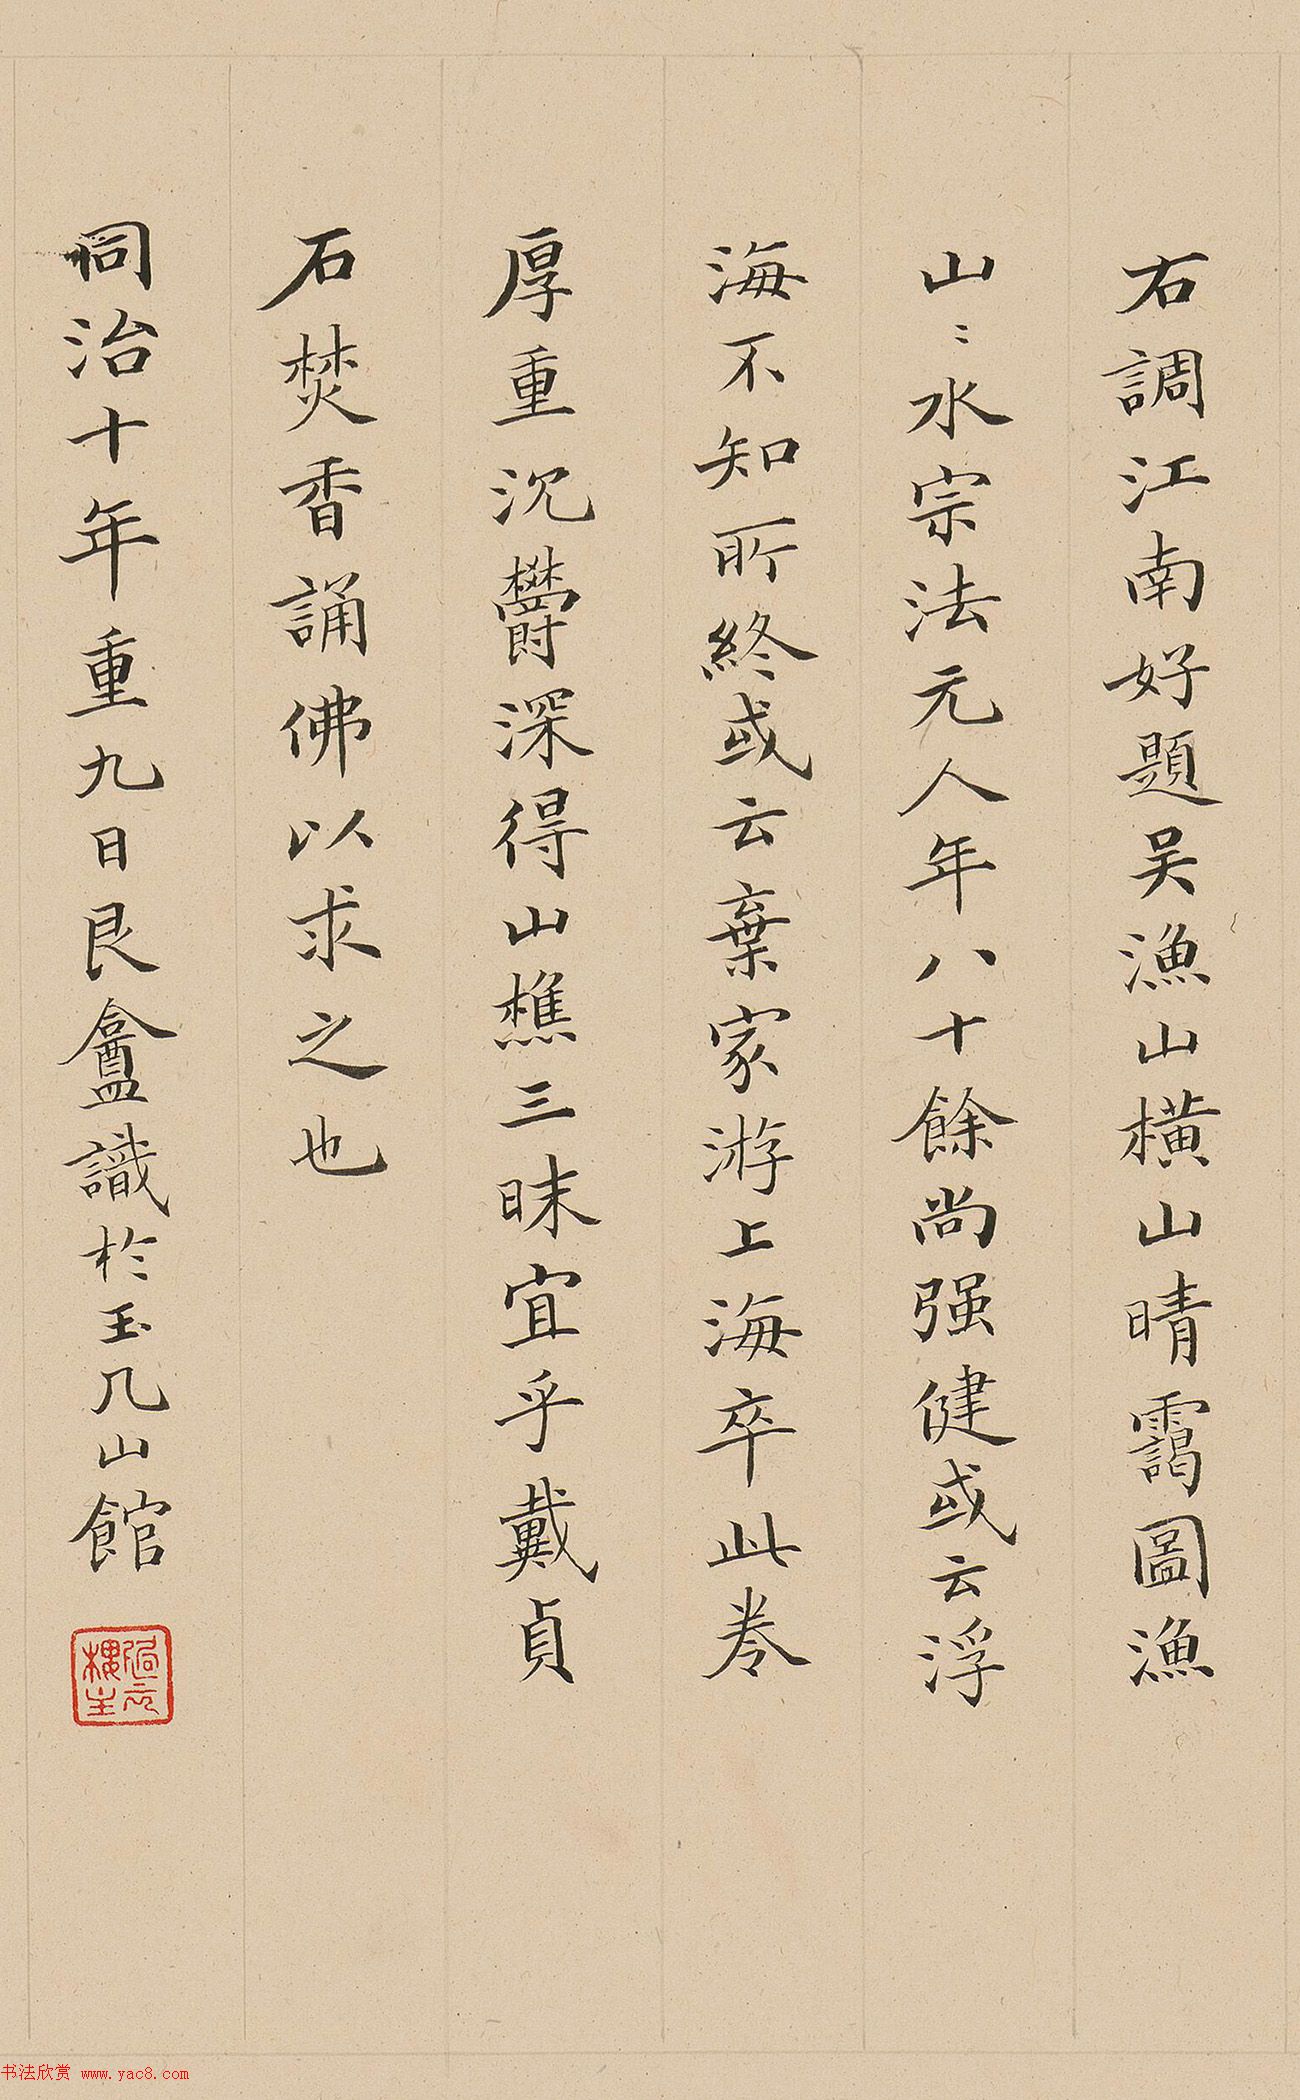 右調江南好題吴漁山橫山晴靄圖漁
山〻水宗法元人年八十餘尚强健或云浮
海不知所終或云棄家游上海卒此卷
厚重沉鬱深得山樵三昧宜乎戴貞
石焚香誦佛以求之也
同治十年重九日艮盦識於玉几山館
過云樓主
书法欣赏 www.yac8.com